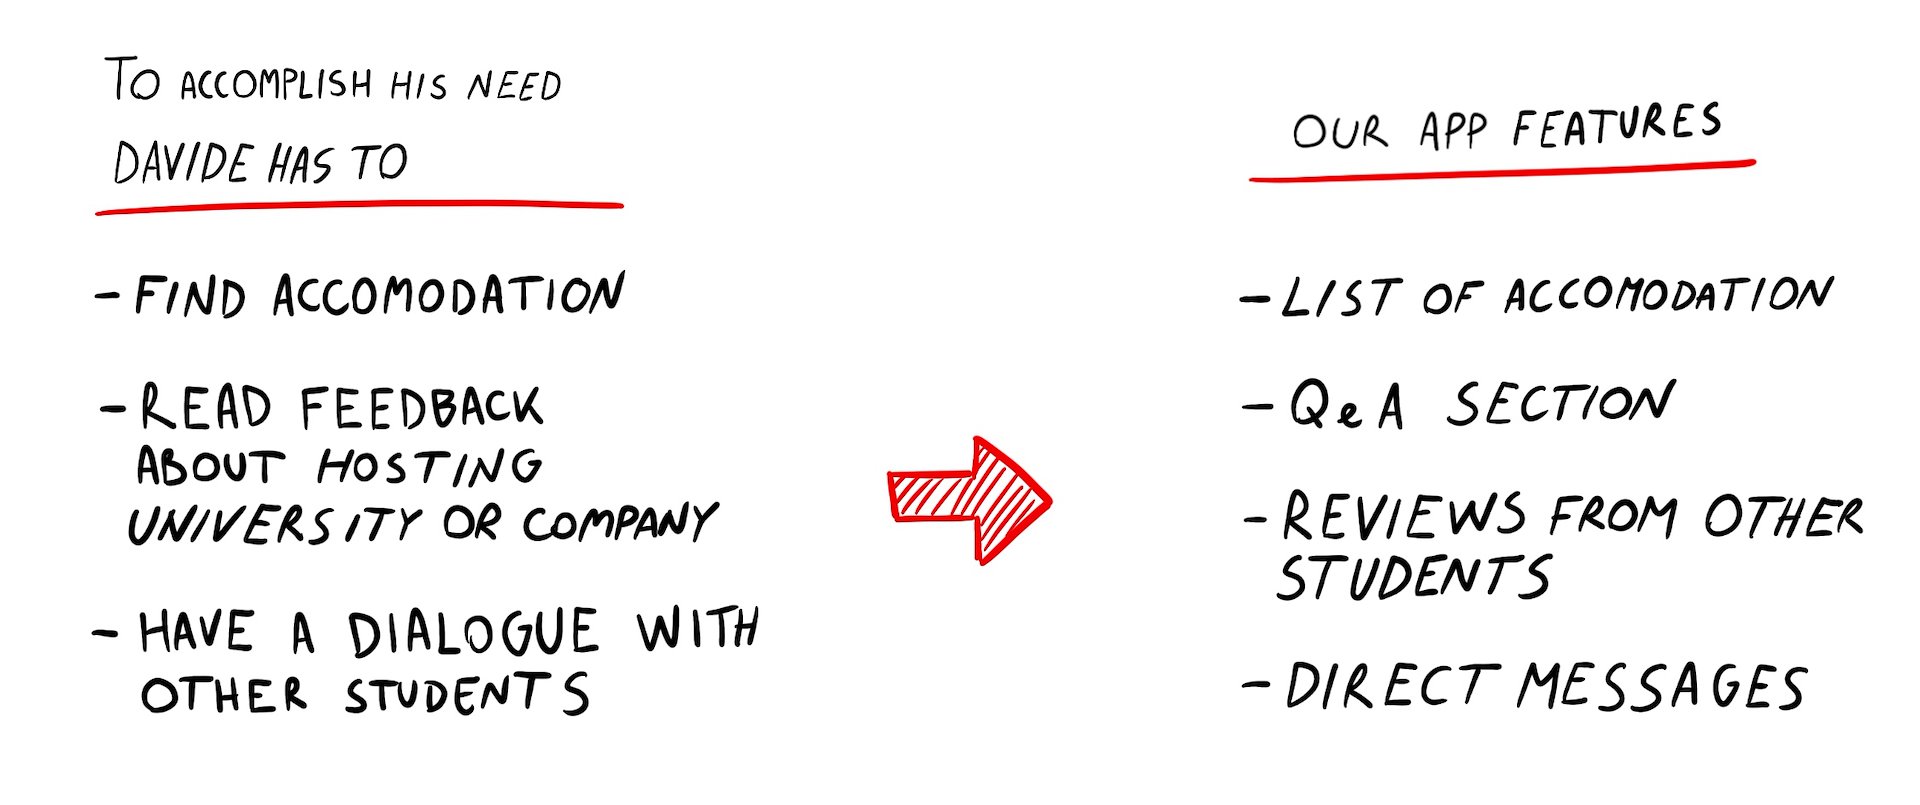 TO ACCOMPLISH HIS NEED
DAVIDE HAS TO
- FIND ACCOMODATION
- READ FEEDBACK
ABOUT HOSTING
UNIVERSITY OR COMPANY
- HAVE A DIALOGUE WITH
OTHER STUDENTS
OUR APP FEATURES
- LIST OF ACCOMODATION
- QeA SECTION
- REVIEWS FROM OTHER
STUDENTS
- DIRECT MESSAGES